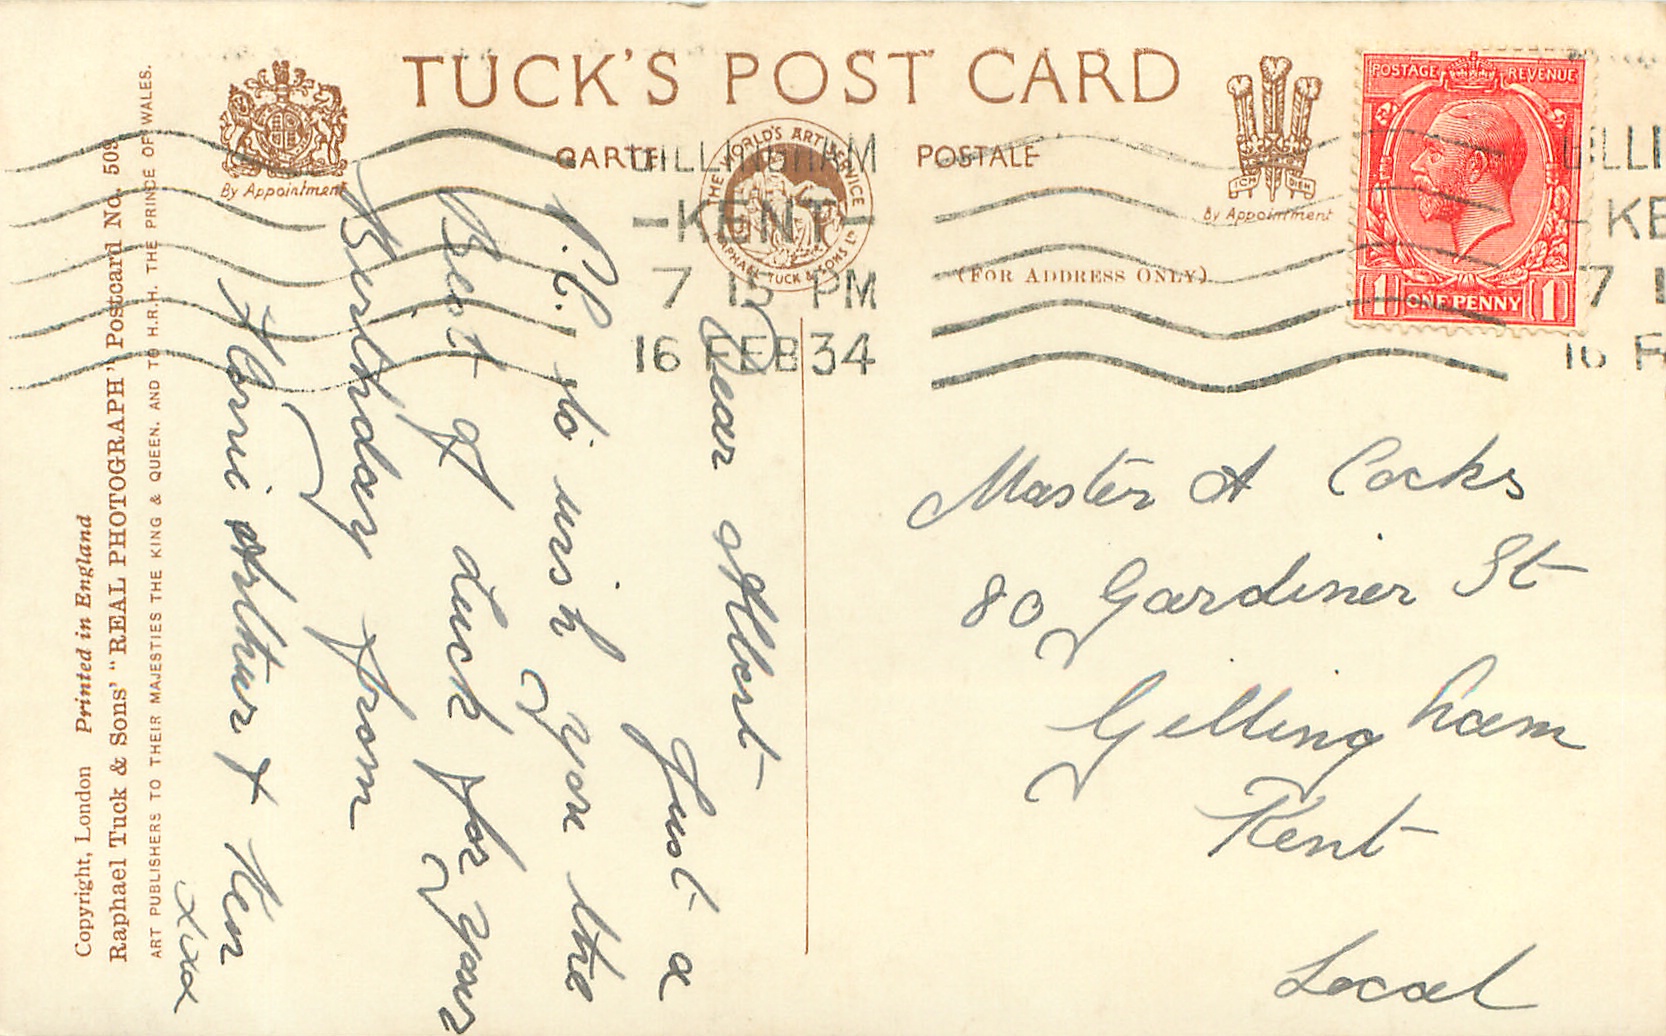 TUCK'S POST CARD
By Appointment
CARTE POSTALE
THE WORLD'S ART SERVICE
RAPHAEL TUCK & SONS LTD
By Appointment
ICH DIEN
(FOR ADDRESS ONLY)
POSTAGE REVENUE
1 ONE PENNY 1
GILLINGHAM
-KENT-
7 15 PM
16 FEB 34
ILLI
KE
7 1
16 F
Master A Cocks
80 Gardiner St
Gillingham
Kent
Local
Dear Albert
Just a
P.C. to wish you the
Best of Luck for your
Birthday from
Florrie Arthur & Ken
xxxx
Copyright, London Printed in England
Raphael Tuck & Sons' "REAL PHOTOGRAPH" Postcard No.
ART PUBLISHERS TO THEIR MAJESTIES THE KING & QUEEN, AND TO H.R.H. THE PRINCE OF WALES.